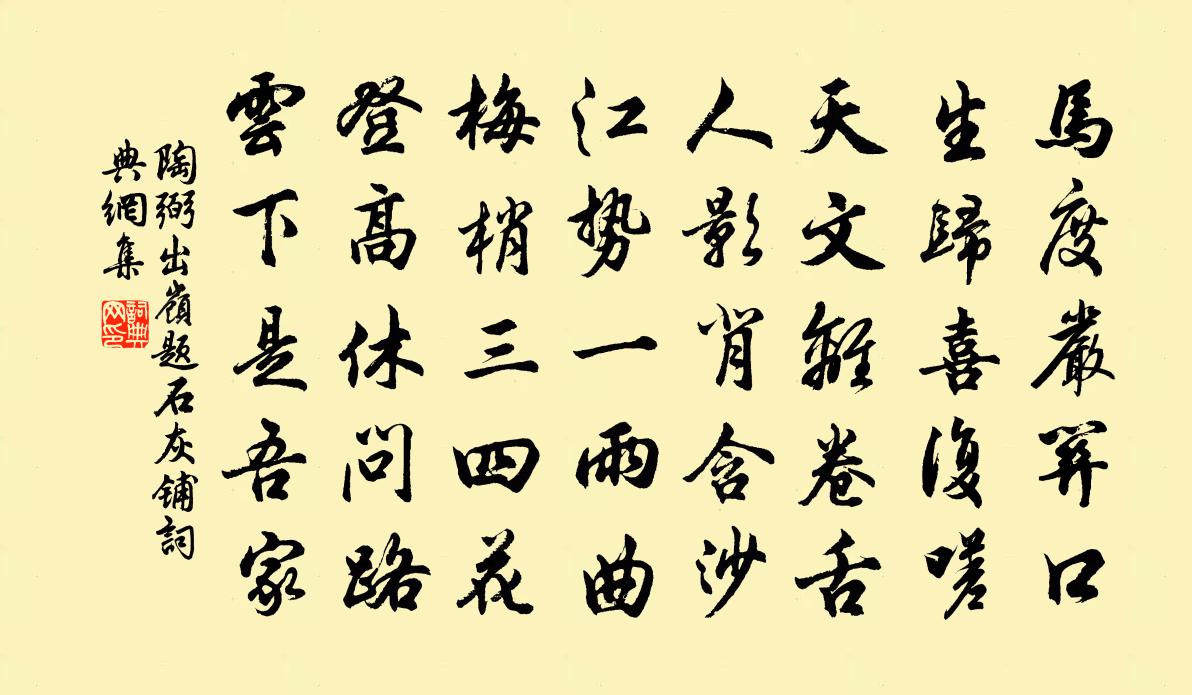 馬度嚴關口
生歸喜復嗟
天文離卷舌
人影背含沙
江势一兩曲
梅梢三四花
登高休問路
雲下是吾家
陶弼出嶺題石灰鋪詞
典網集
詞典
网印